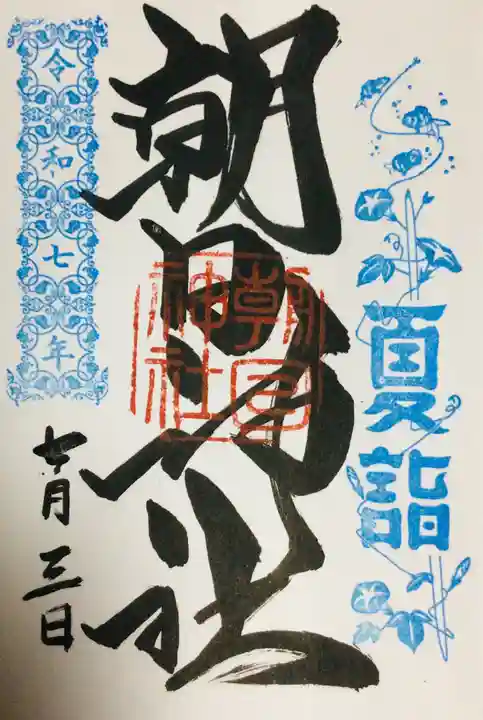 夏詣
朝日神社
朝日神社
令和七年
七月三日